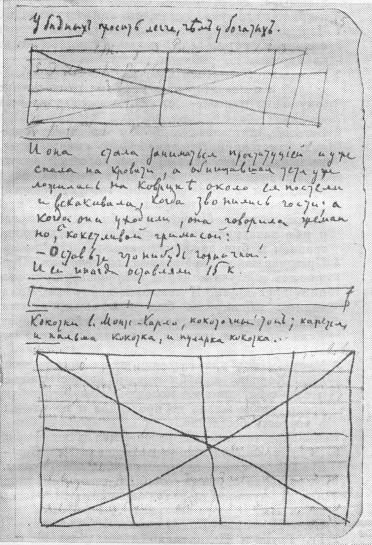 У бѣдныхъ просить легче, чѣмъ у богатыхъ.
И она стала заниматься проституціей и уже
спала на кровати, а обнищавшая тетя уже
ложилась на коврикѣ около ея постели
и вскакивала, когда звонились гости: а
когда они уходили, она говорила жеман
но, съ кокетливой гримасой:
— Оставьте что нибудь горничной.
И ей иногда оставляли 15 к.
Кокотки в Монте-Карло, кокоточный тонъ; кажется,
и пальма кокотка, и пулярка кокотка...